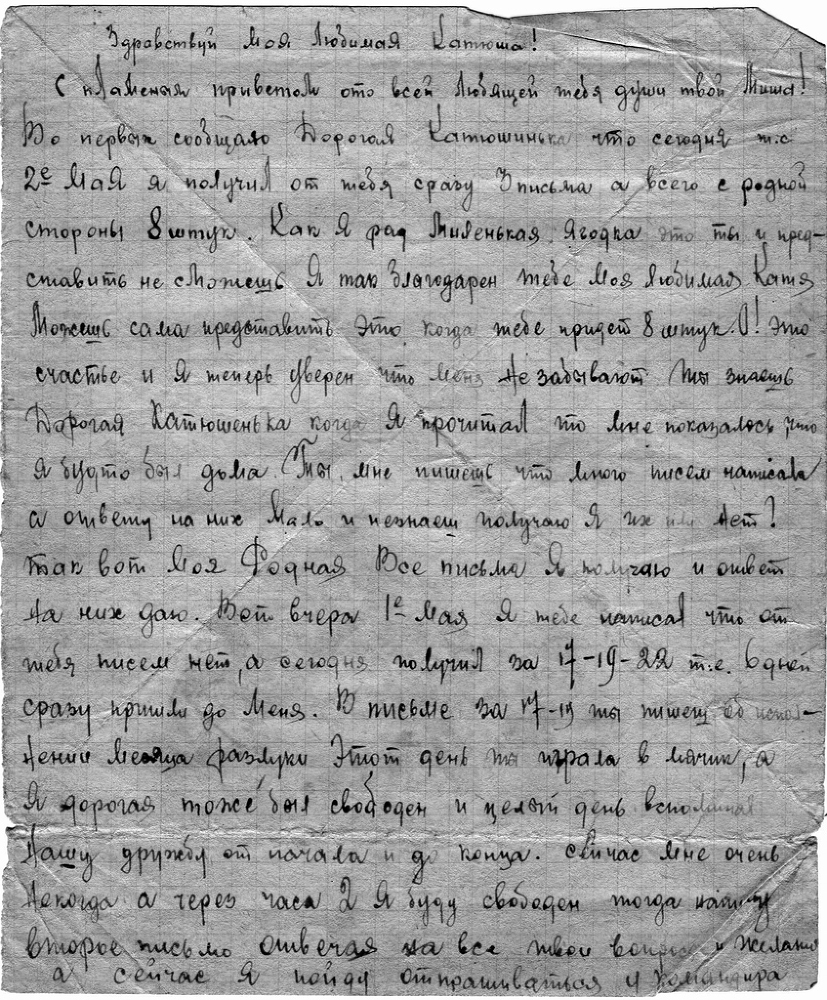 Здравствуй Моя Любимая Катюша!
С пламеным приветом ото всей Любящей тебя души твой Миша!
Во первых сообщаю Дорогая Катюшинька что сегодня т.е
2е Мая я получил от тебя сразу 3 письма а всего с родной
стороны 8 штук. Как Я рад Миленькая Ягодка это ты и пред-
ставить не сможешь Я так благодарен тебе Моя Любимая Катя
Можешь сама представить это когда тебе придет 8 штук. О! это
счастье и Я теперь уверен что меня не забывают Ты знаешь
Дорогая Катюшенька когда Я прочитал то мне показалось, что
Я будто был дома. Ты мне пишешь что много писем написала
а ответу на них Мало и незнаеш получаю Я их или нет?
Так вот Моя Родная Все письма Я получаю и ответ
на них даю. Вот вчера 1е Мая Я тебе написал что от
тебя писем нет, а сегодня получил за 17-19-22 т.е. 6 дней
сразу пришли до Меня. В письме за 17-19 ты пишеш об испол-
нении Месяца разлуки Этот день ты играла в мячик, а
Я дорогая тоже был свободен и целый день вспоминал
Нашу дружбу от начала и до конца. Сейчас мне очень
Некогда а через часа 2 Я буду свободен тогда напишу
второе письмо отвечая на все твои вопросы и желания
а сейчас Я пойду отпрашиваться у командира